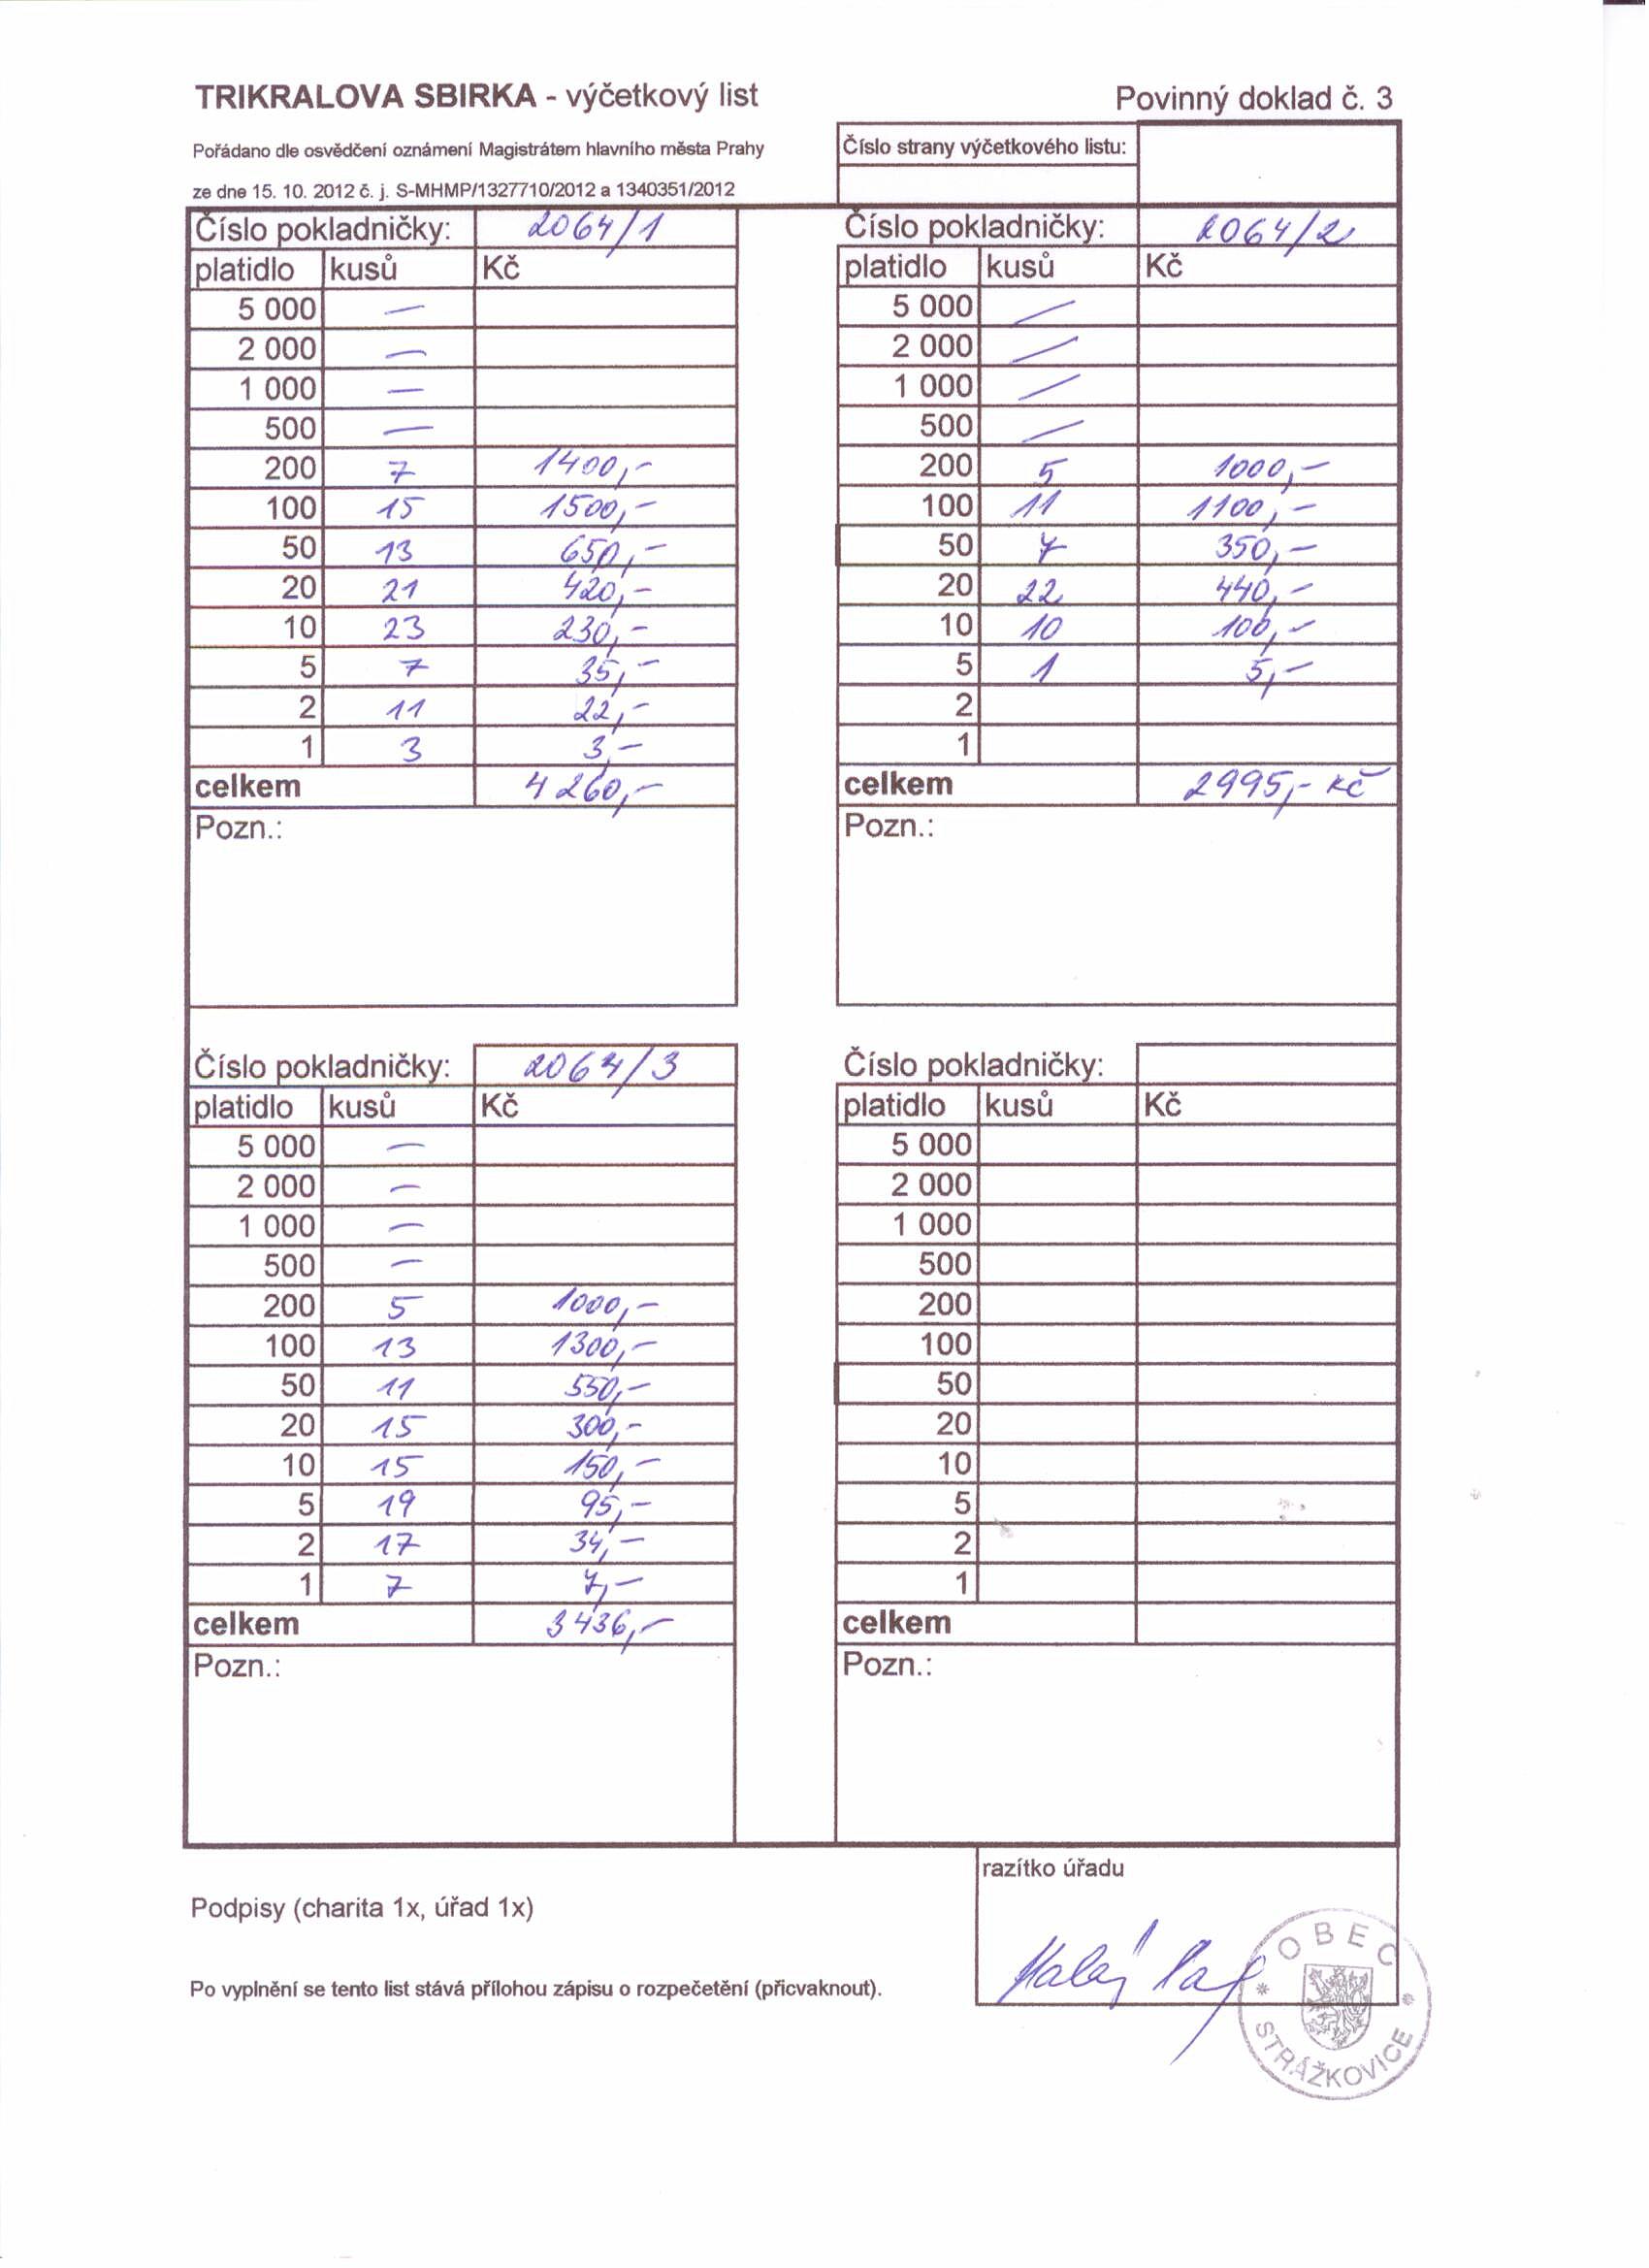 TRIKRALOVA SBIRKA - výčetkový list
Povinný doklad č. 3
Pořádano dle osvědčení oznámení Magistrátem hlavního města Prahy
Číslo strany výčetkového listu:
ze dne 15. 10. 2012 č. j. S-MHMP/1327710/2012 a 1340351/2012
Číslo pokladničky: 2064/1
platidlo kusů Kč
5 000 —
2 000 —
1 000 —
500 —
200 7 1400,-
100 15 1500,-
50 13 650,-
20 21 420,-
10 23 230,-
5 7 35,-
2 11 22,-
1 3 3,-
celkem 4260,-
Pozn.:
Číslo pokladničky: 2064/2
platidlo kusů Kč
5 000 —
2 000 —
1 000 —
500 —
200 5 1000,-
100 11 1100,-
50 7 350,-
20 22 440,-
10 10 100,-
5 1 5,-
2
1
celkem 2995,- Kč
Pozn.:
Číslo pokladničky: 2064/3
platidlo kusů Kč
5 000 —
2 000 —
1 000 —
500 —
200 5 1000,-
100 13 1300,-
50 11 550,-
20 15 300,-
10 15 150,-
5 19 95,-
2 17 34,-
1 7 7,-
celkem 3436,-
Pozn.:
Číslo pokladničky:
platidlo kusů Kč
5 000
2 000
1 000
500
200
100
50
20
10
5
2
1
celkem
Pozn.:
razítko úřadu
Podpisy (charita 1x, úřad 1x)
OBEC
STRÁŽKOVICE
Po vyplnění se tento list stává přílohou zápisu o rozpečetění (přicvaknout).